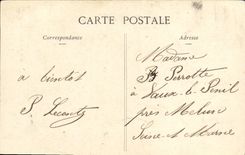 CARTE POSTALE
Correspondance
Adresse
a bientôt
P. Lecomte
Madame
Perrotte
à Vaux-le Penil
près Melun
Seine-et-Marne